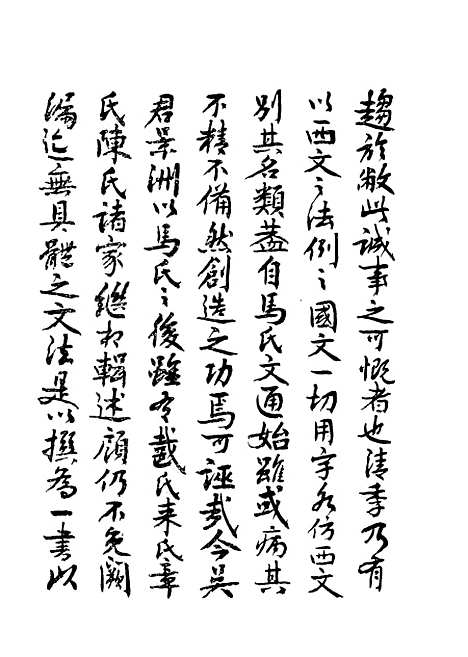 趨於敝此誠事之可慨者也清季乃有
以西文之法例之國文一切用字各仿西文
別其名類蓋自馬氏文通始雖或病其
不精不備然創造之功焉可誣哉今吳
君景洲以馬氏之後雖有戴氏來氏章
氏陳氏諸家繼相輯述顧仍不免闕
漏迄無具體之文法是以撰為一書以